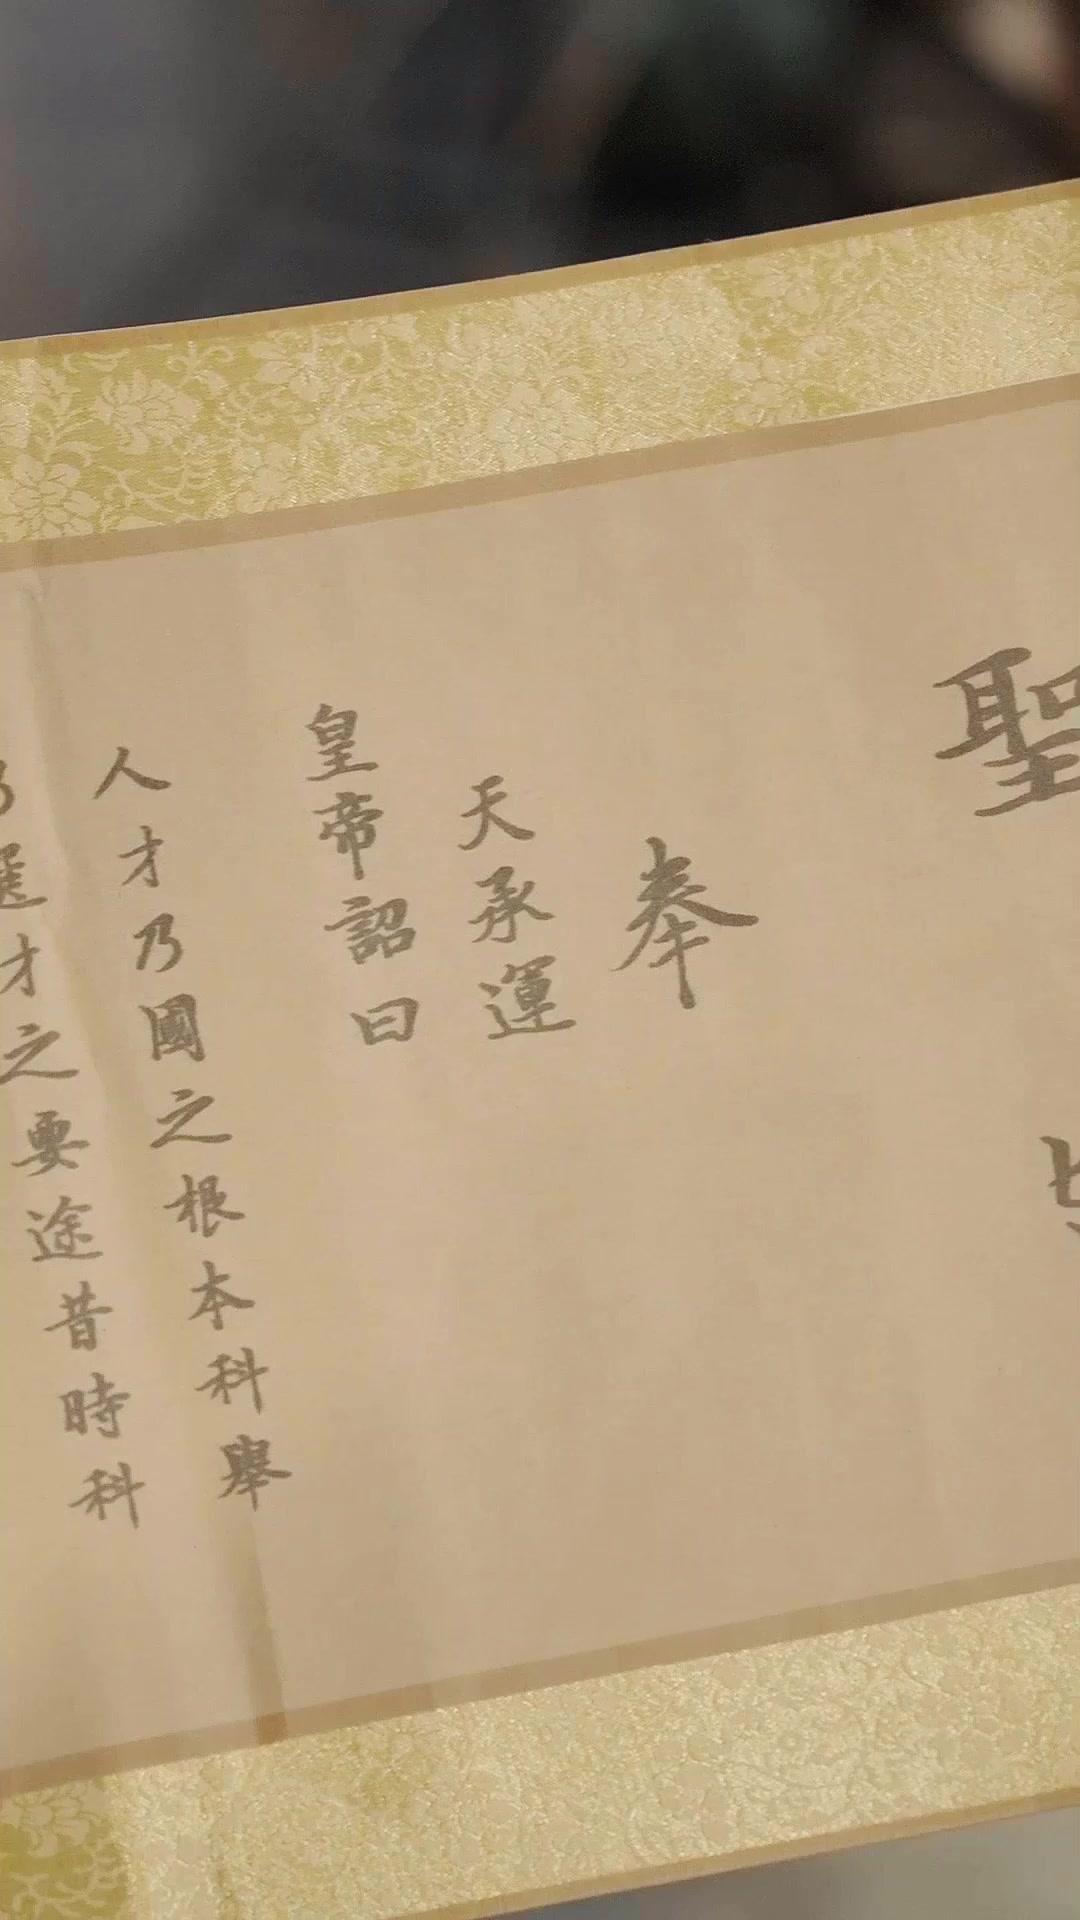 聖
奉
天承運
皇帝詔曰
人才乃國之根本科舉
乃選才之要途昔時科